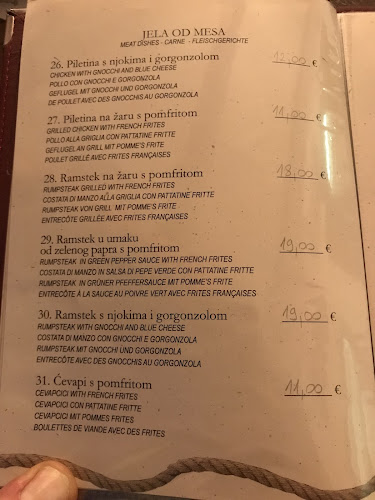 JELA OD MESA
MEAT DISHES - CARNE - FLEISCHGERICHTE
26. Piletina s njokima i gorgonzolom 12,00 €
CHICKEN WITH GNOCCHI AND BLUE CHEESE
POLLO CON GNOCHI E GORGONZOLA
GEFLUGEL MIT GNOCHI UND GORGONZOLA
DE POULET AVEC DES GNOCCHIS AU GORGONZOLA
27. Piletina na žaru s pomfritom 11,00 €
GRILLED CHICKEN WITH FRENCH FRITES
POLLO ALLA GRIGLIA CON PATTATINE FRITTE
GEFLUGEL AN GRILL MIT POMME'S FRITE
POULET GRILLÉ AVEC FRITES FRANÇAISES
28. Ramstek na žaru s pomfritom 18,00 €
RUMPSTEAK GRILLED WITH FRENCH FRITES
COSTATA DI MANZO ALLA GRIGLIA CON PATTATINE FRITTE
RUMPSTEAK VON GRILL MIT POMME'S FRITE
ENTRECÔTE GRILLÉE AVEC FRITES FRANÇAISES
29. Ramstek u umaku
od zelenog papra s pomfritom 19,00 €
RUMPSTEAK IN GREEN PEPPER SAUCE WITH FRENCH FRITES
COSTATA DI MANZO IN SALSA DI PEPE VERDE CON PATTATINE FRITTE
RUMPSTEAK IN GRÜNER PFEFFERSAUCE MIT POMME'S FRITE
ENTRECÔTE À LA SAUCE AU POIVRE VERT AVEC FRITES FRANÇAISES
30. Ramstek s njokima i gorgonzolom 19,00 €
RUMPSTEAK WITH GNOCCHI AND BLUE CHEESE
COSTATA DI MANZO CON GNOCCHI E GORGONZOLA
RUMPSTEAK MIT GNOCCHI UND GORGONZOLA
ENTRECÔTE AVEC DES GNOCCHIS AU GORGONZOLA
31. Ćevapi s pomfritom 11,00 €
CEVAPCICI WITH FRENCH FRITES
CEVAPCICI CON PATTATINE FRITTE
CEVAPCICI MIT POMMES FRITES
BOULETTES DE VIANDE AVEC DES FRITES